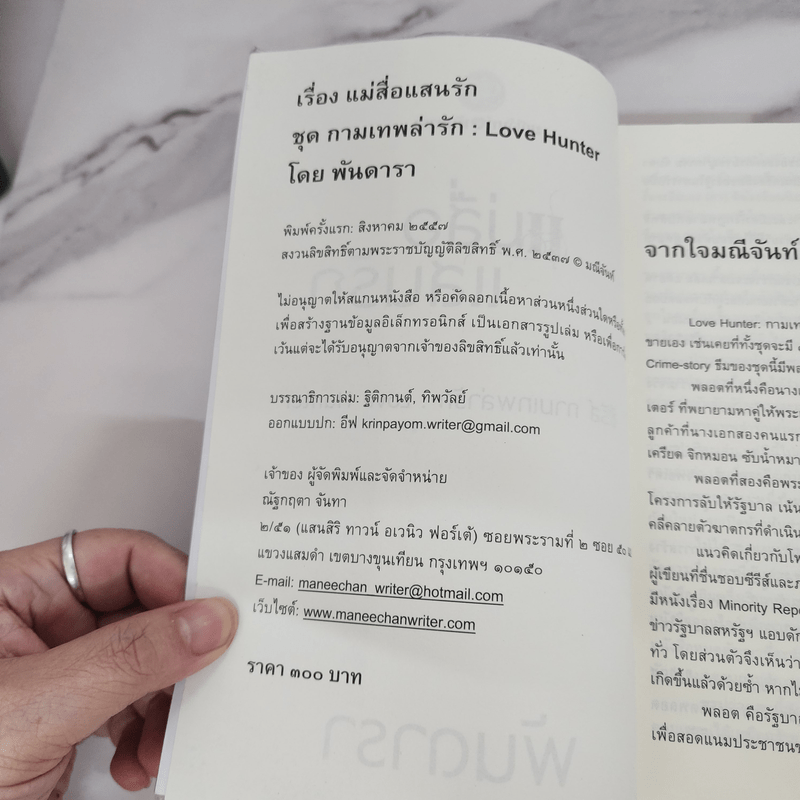 เรื่อง แม่สื่อแสนรัก
ชุด กามเทพล่ารัก : Love Hunter
โดย พันดารา
พิมพ์ครั้งแรก: สิงหาคม ๒๕๕๗
สงวนลิขสิทธิ์ตามพระราชบัญญัติลิขสิทธิ์ พ.ศ. ๒๕๓๗ © มณีจันท์
ไม่อนุญาตให้สแกนหนังสือ หรือคัดลอกเนื้อหาส่วนหนึ่งส่วนใด
เพื่อสร้างฐานข้อมูลอิเล็กทรอนิกส์ เป็นเอกสารรูปเล่ม หรือเพื่อ
เว้นแต่จะได้รับอนุญาตจากเจ้าของลิขสิทธิ์แล้วเท่านั้น
บรรณาธิการเล่ม: ฐิติกานต์, ทิพวัลย์
ออกแบบปก: อีฟ krinpayom.writer@gmail.com
เจ้าของ ผู้จัดพิมพ์และจัดจำหน่าย
ณัฐกฤตา จันทา
๒/๕๑ (แสนสิริ ทาวน์ อเวนิว ฟอร์เต้) ซอยพระรามที่ ๒ ซอย
แขวงแสมดำ เขตบางขุนเทียน กรุงเทพฯ ๑๐๑๕๐
E-mail: maneechan_writer@hotmail.com
เว็บไซต์: www.maneechanwriter.com
ราคา ๓๐๐ บาท
จากใจมณีจันท์
Love Hunter: กามเท
ขายเอง เช่นเคยที่ทั้งชุดจะมี
Crime-story ธีมของชุดนี้มีพล
พลอตที่หนึ่งคือนางเ
เตอร์ ที่พยายามหาคู่ให้พระ
ลูกค้าที่นางเอกสองคนแรก
เครียด จิกหมอน ซับน้ำหมา
พลอตที่สองคือพระ
โครงการลับให้รัฐบาล เน้น
คลี่คลายตัวฆาตกรที่ดำเนิน
แนวคิดเกี่ยวกับโพ
ผู้เขียนที่ชื่นชอบซีรีส์และภ
มีหนังเรื่อง Minority Repo
ข่าวรัฐบาลสหรัฐฯ แอบดัก
ทั่ว โดยส่วนตัวจึงเห็นว่า
เกิดขึ้นแล้วด้วยซ้ำ หากไ
พลอต คือรัฐบาล
เพื่อสอดแนมประชาชน